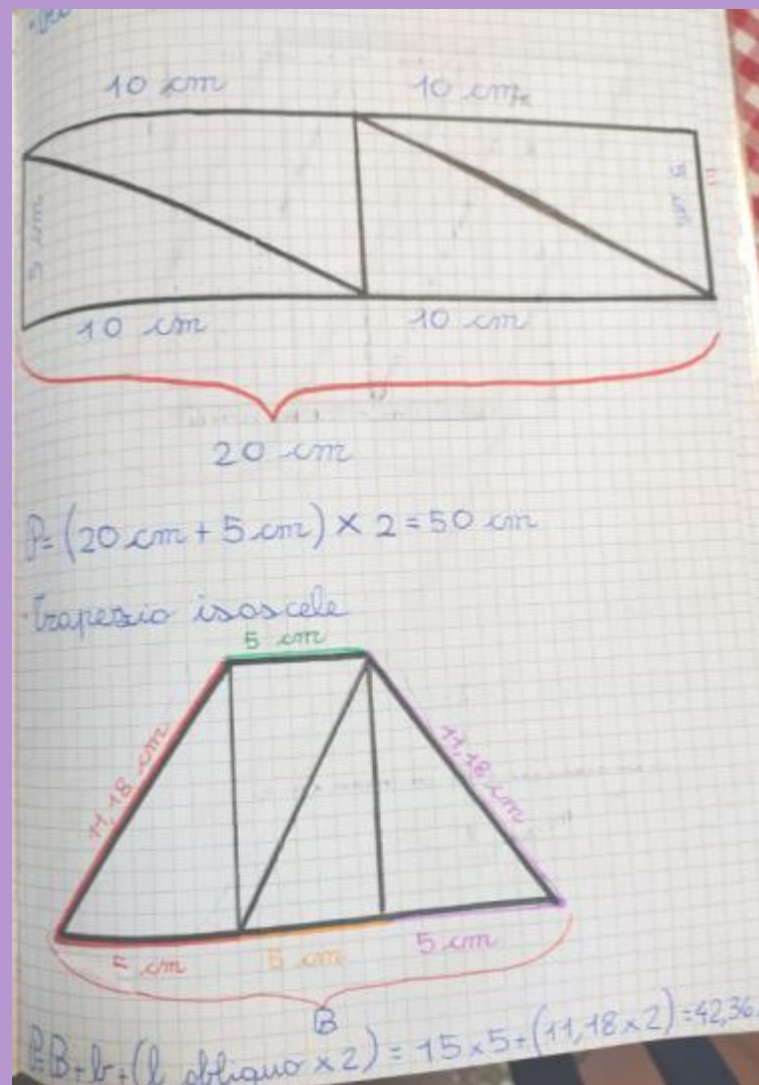 10 cm 10 cm
5 cm 5 cm
10 cm 10 cm
20 cm
P= (20 cm + 5 cm) × 2 = 50 cm
Trapezio isoscele
5 cm
11,18 cm 11,18 cm
5 cm 5 cm 5 cm
B
P=B+b+(l obliquo × 2) = 15×5+(11,18×2)=42,36